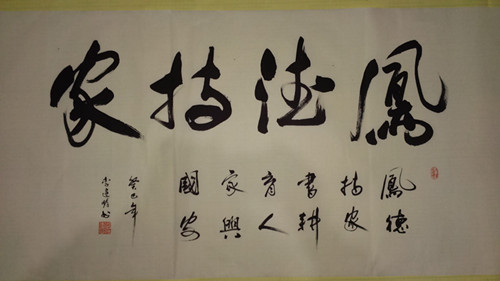 鳳德持家
鳳德
持家
書耕
育人
家興
國安
癸巳年